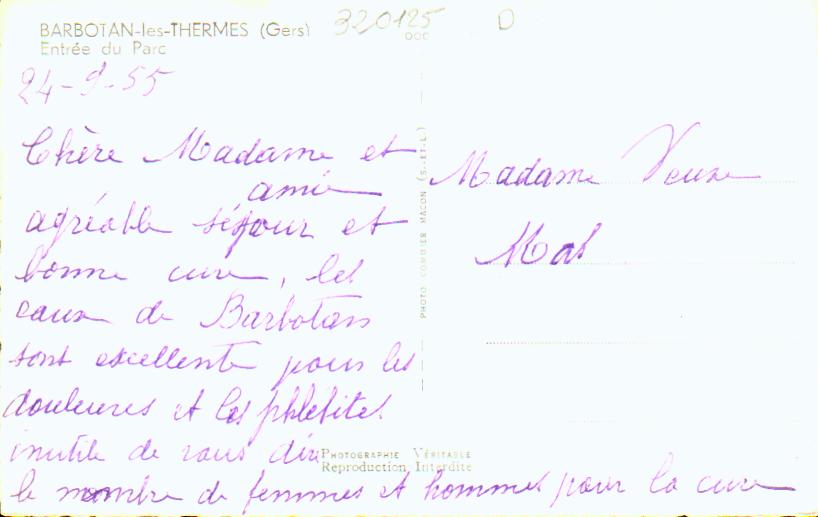 BARBOTAN-les-THERMES (Gers)
Entrée du Parc
320125
D
24-9-55
Chère Madame et
amie
agréable séjour et
bonne cure, les
eaux de Barbotan
sont excellente pour les
douleures et les phlébites
inutile de vous dire
le nombre de femmes et hommes pour la cure
PHOTO COMBIER MACON (S.-ET-L.)
Madame Veuve
Mas
PHOTOGRAPHIE VÉRITABLE
Reproduction Interdite